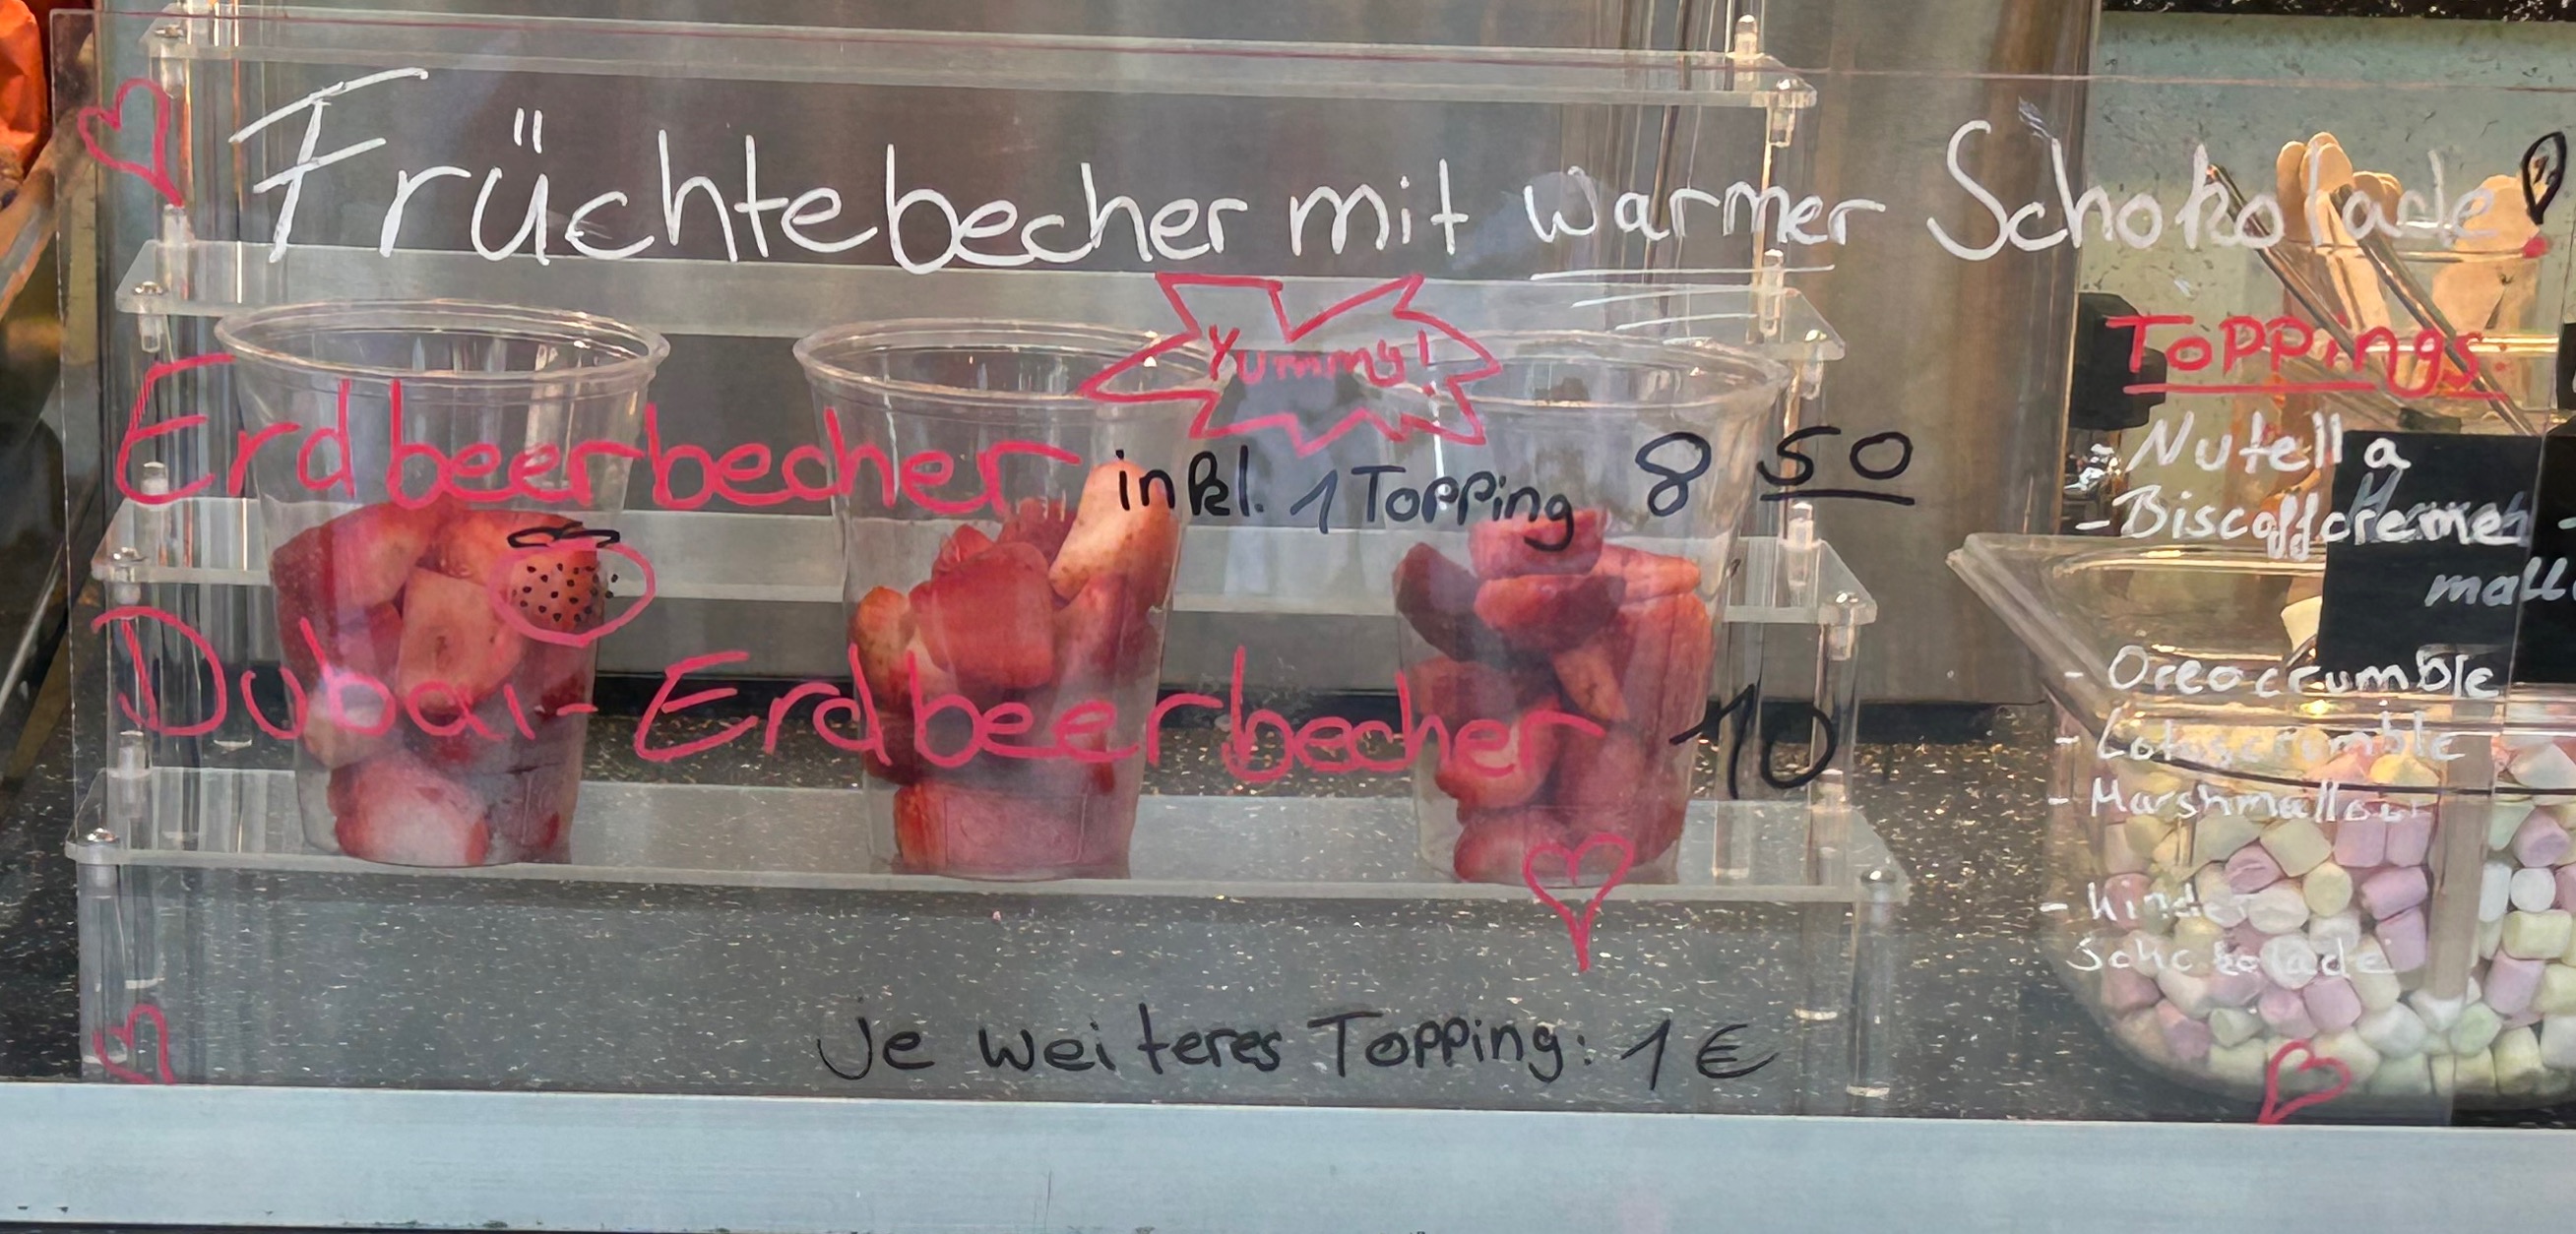 Früchtebecher mit warmer Schokolade!
Yummy!
Erdbeerbecher inkl. 1 Topping 8 50
Dubai-Erdbeerbecher 10
Je weiteres Topping: 1 €
Toppings:
- Nutella
- Biscoffcreme
- Oreocrumble
- Lotuscrumble
- Marshmallow
- Kinder
Schokolade